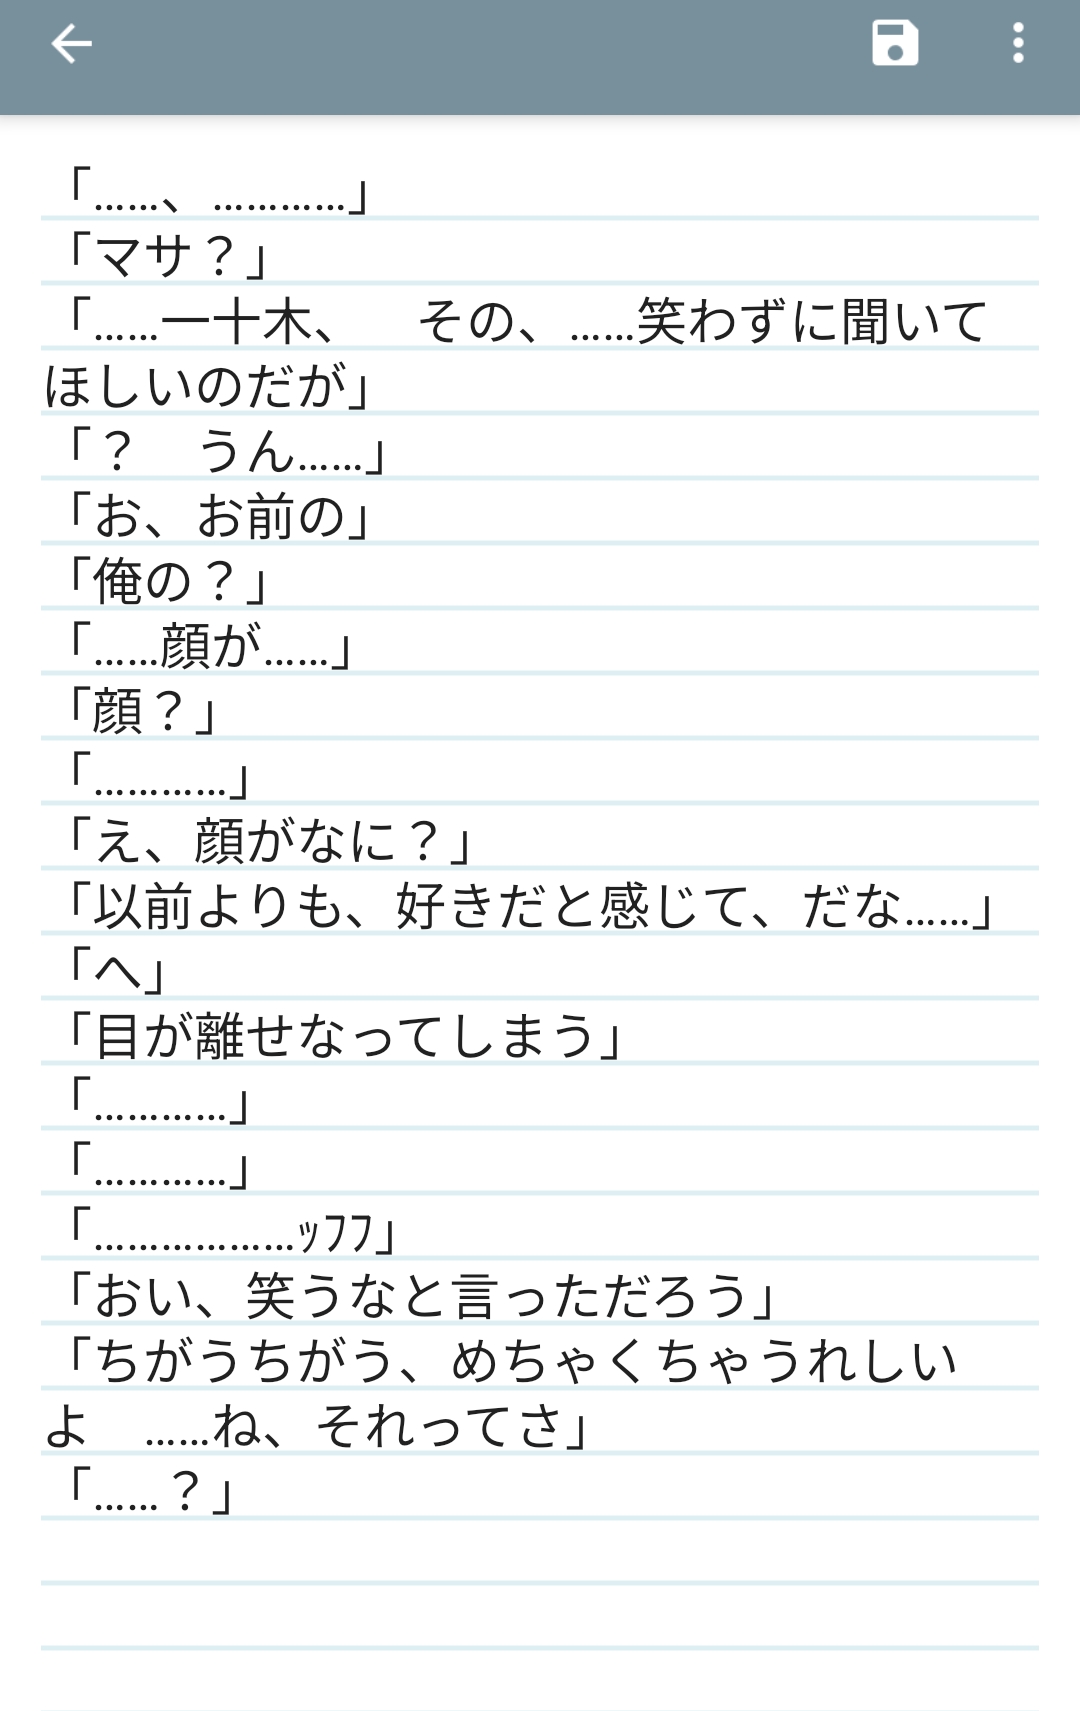 「……、…………」
「マサ？」
「……一十木、　その、……笑わずに聞いて
ほしいのだが」
「？　うん……」
「お、お前の」
「俺の？」
「……顔が……」
「顔？」
「…………」
「え、顔がなに？」
「以前よりも、好きだと感じて、だな……」
「へ」
「目が離せなってしまう」
「…………」
「…………」
「………………ｯﾌﾌ」
「おい、笑うなと言っただろう」
「ちがうちがう、めちゃくちゃうれしい
よ　……ね、それってさ」
「……？」